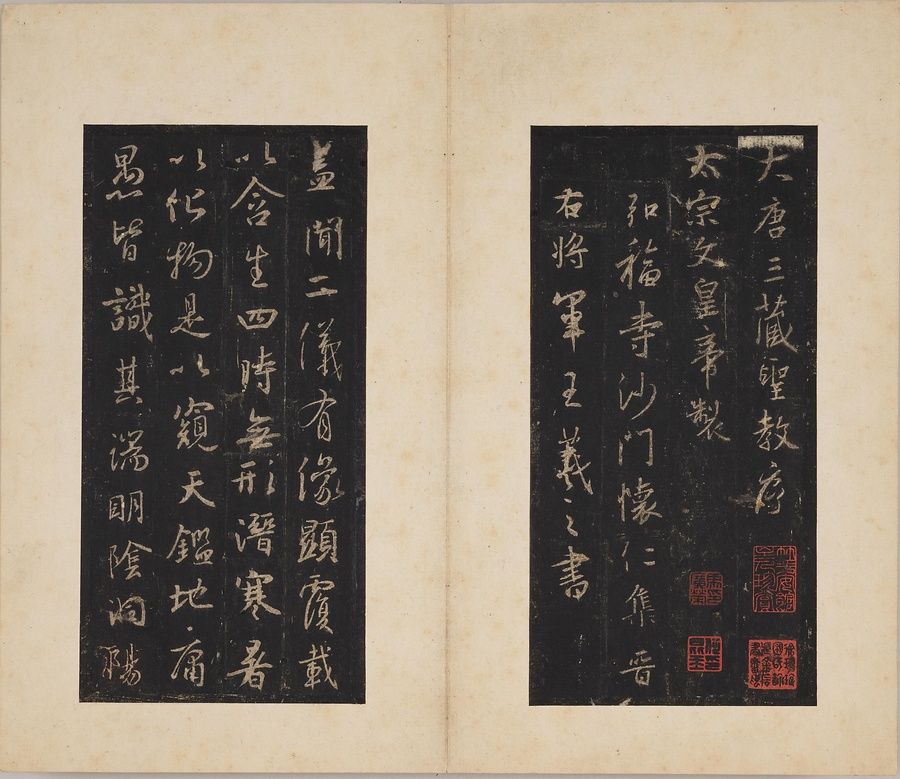 大唐三藏聖教序
太宗文皇帝製
弘福寺沙門懷仁集晉
右將軍王羲之書
蓋聞二儀有像顯覆載
以含生四時無形潛寒暑
以化物是以窺天鑑地庸
愚皆識其端明陰洞陽